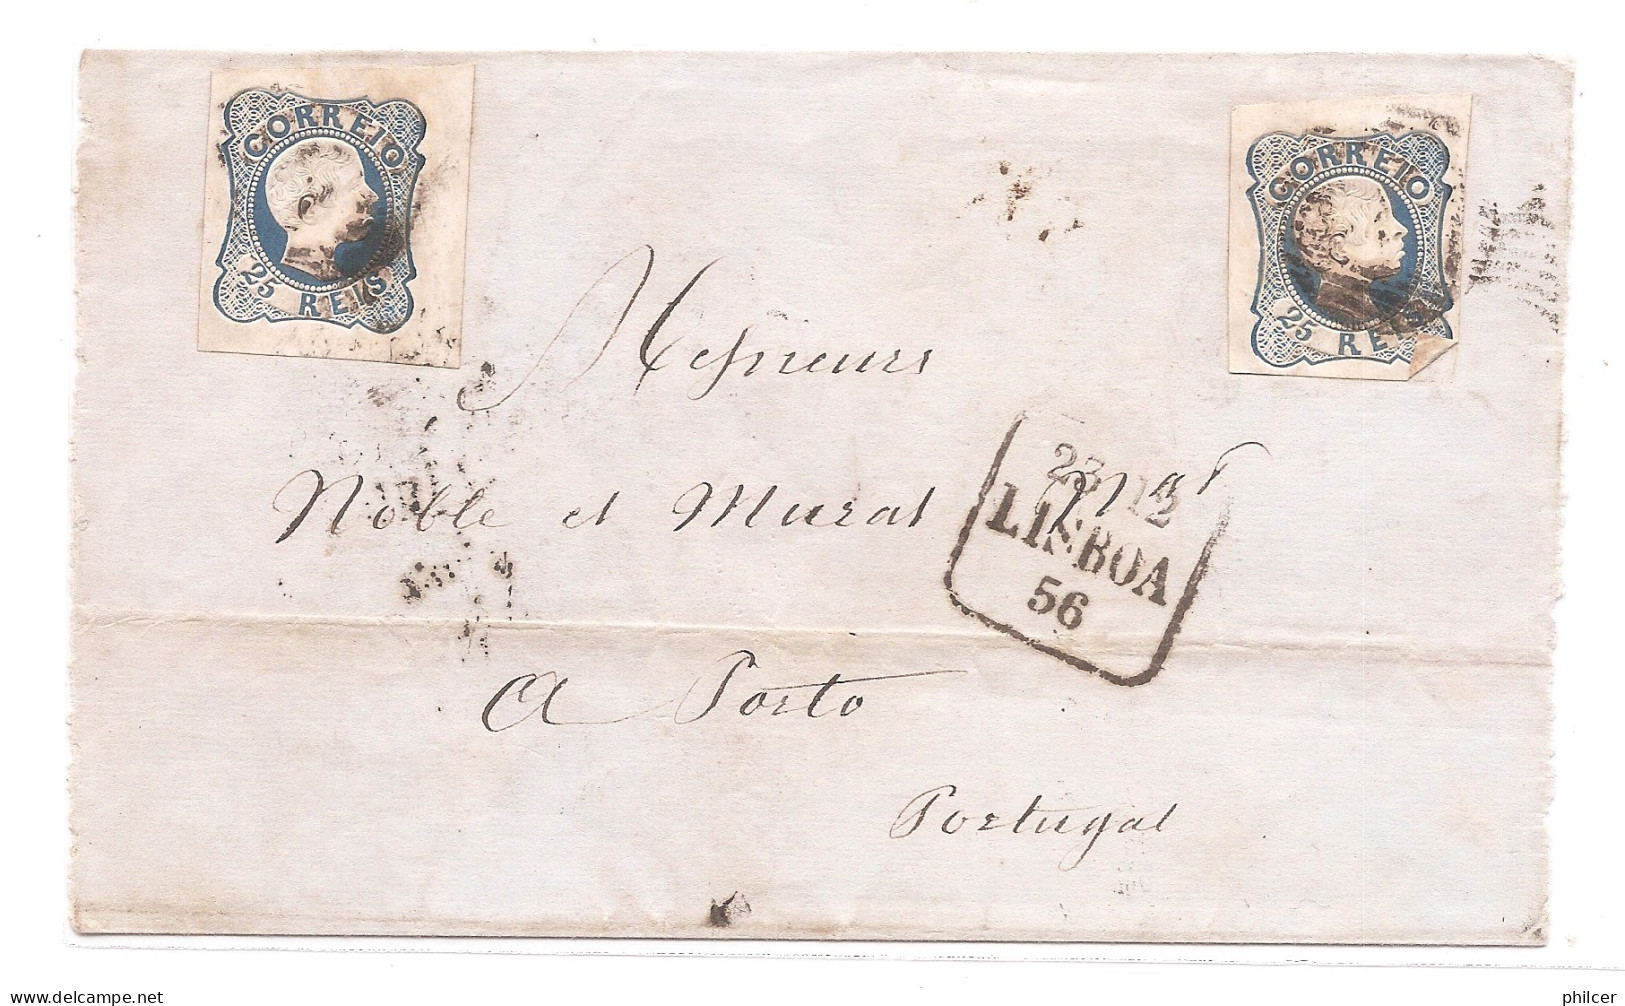 CORREIO
25 REIS
CORREIO
25 REIS
Messieurs
Noble et Murat
23 12
LISBOA
56
A Porto
Portugal
delcampe.net
philcer